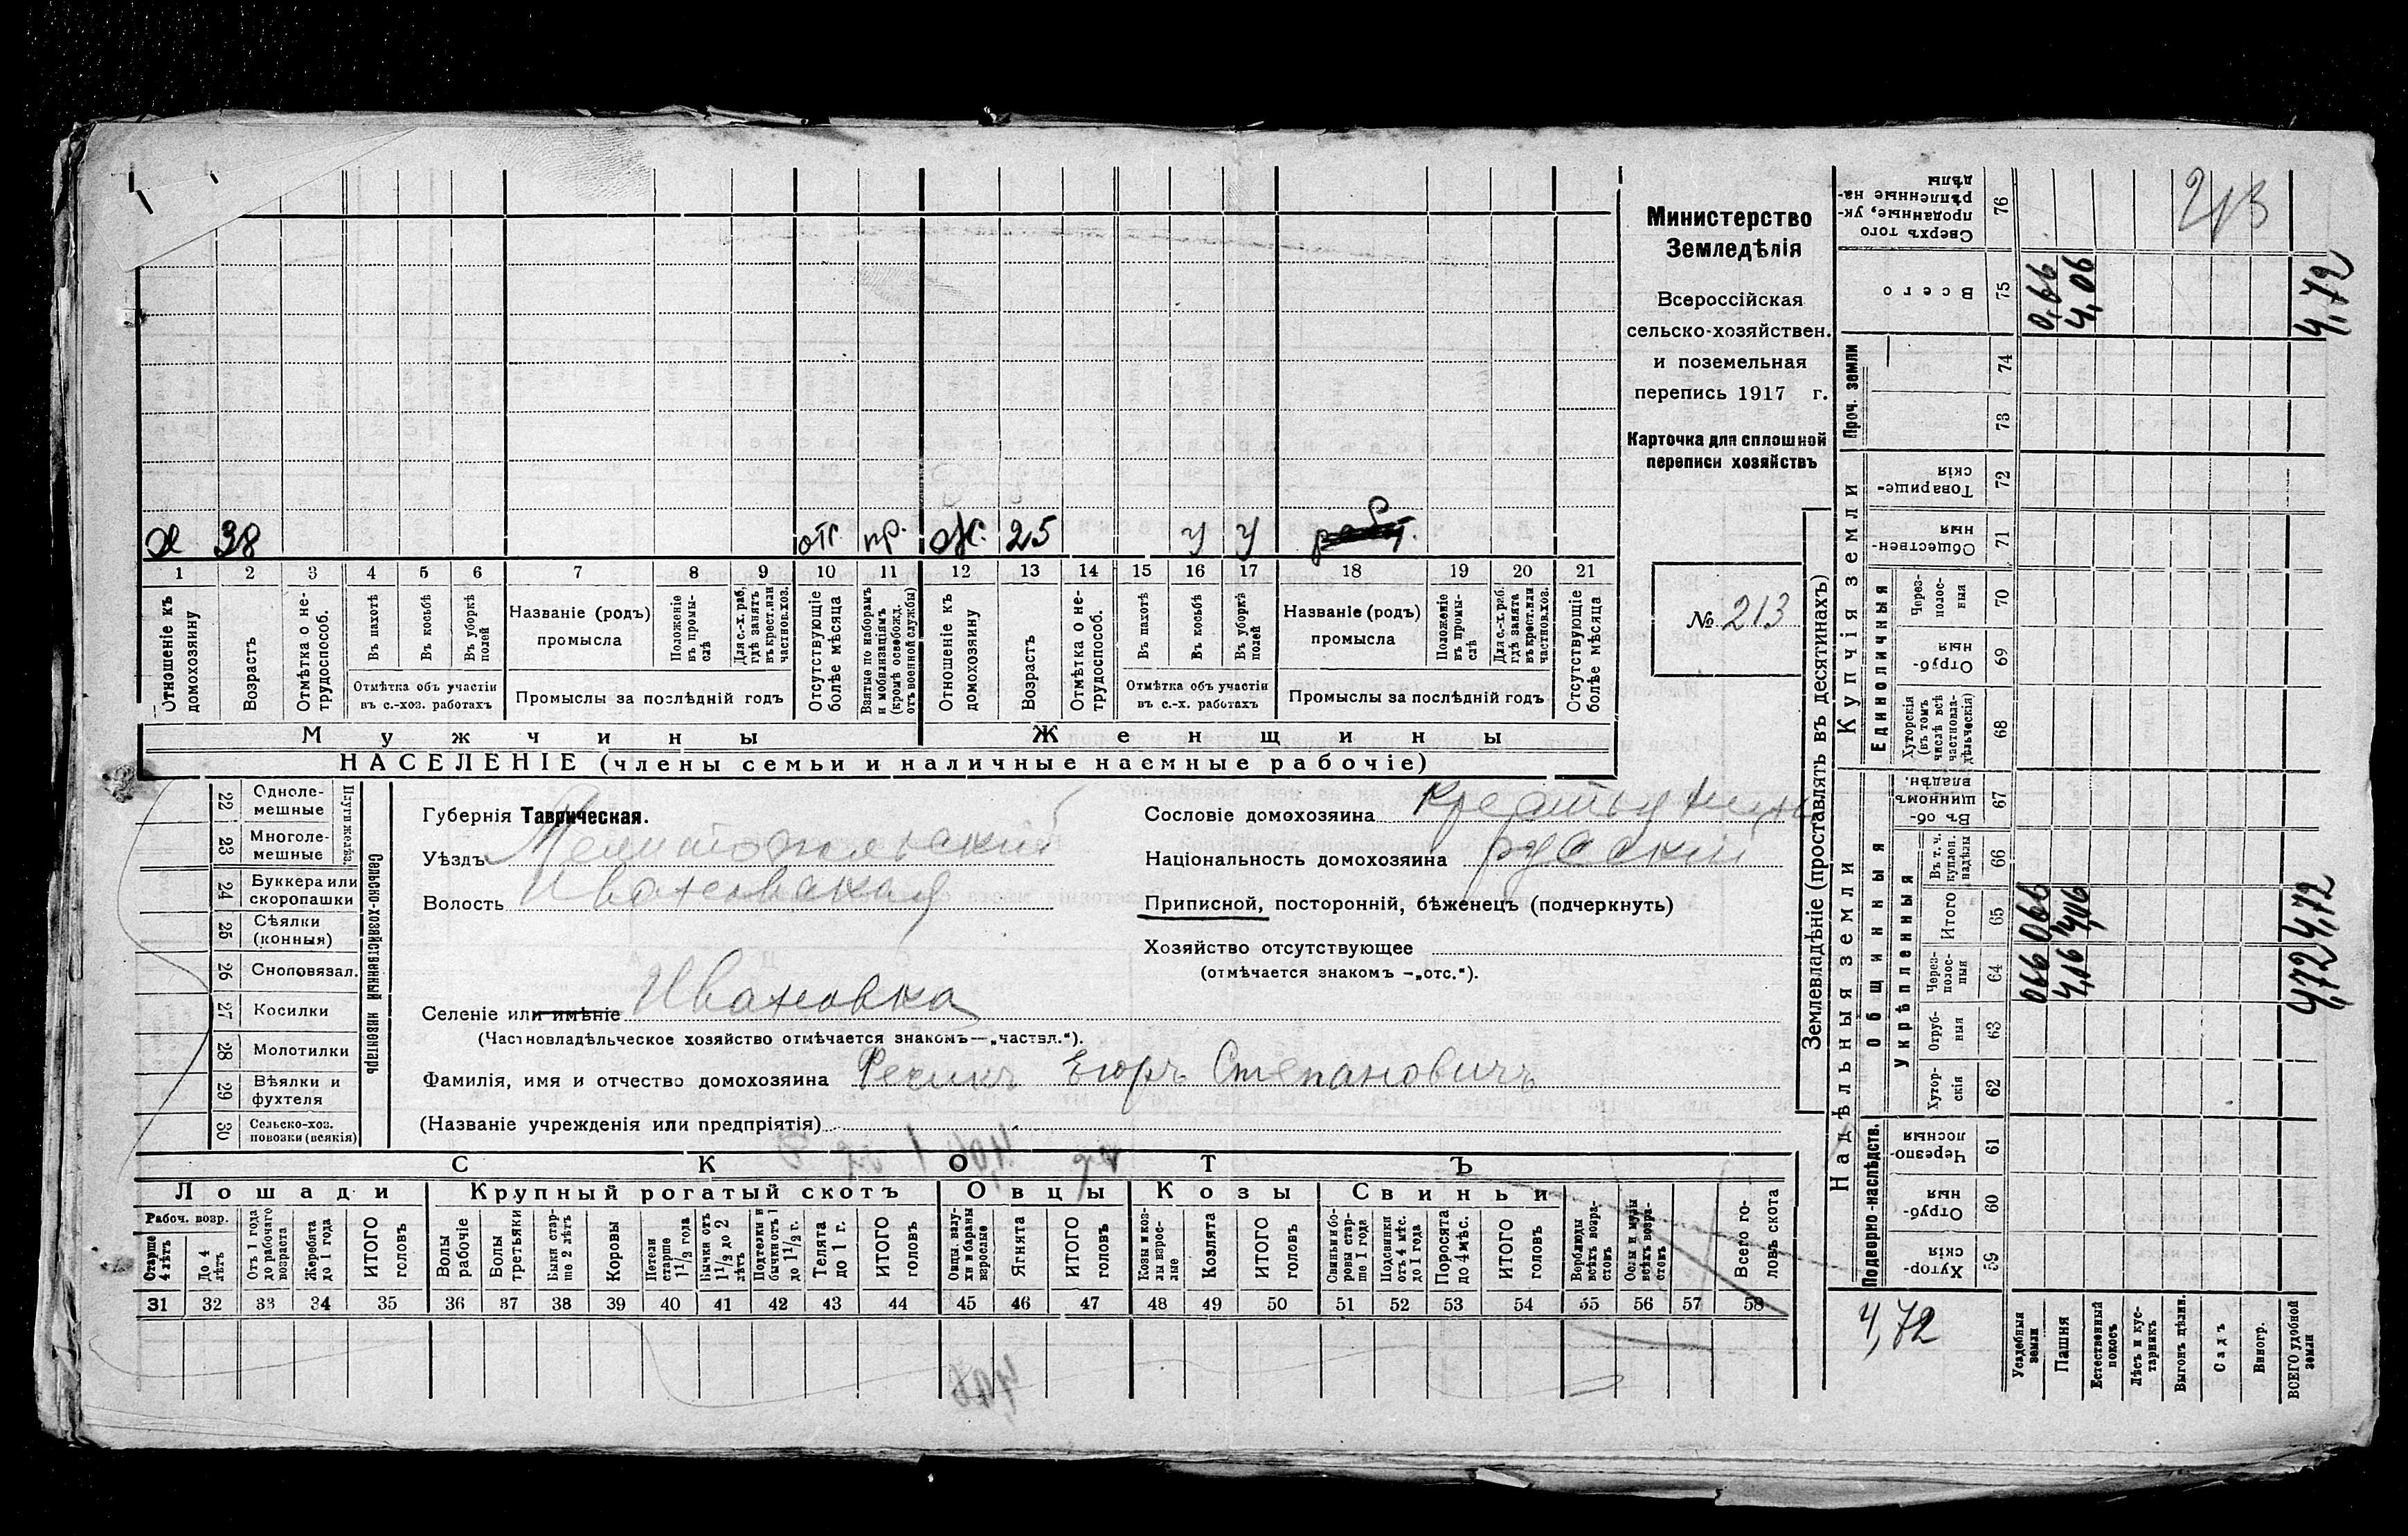 Министерство
Земледѣлія
Всероссійская
сельско-хозяйствен.
и поземельная
перепись 1917 г.
Карточка для сплошной
переписи хозяйствъ
№ 213
х 38 отс. пр. ж. 25 у у работ.
1 2 3 4 5 6 7 8 9 10 11 12 13 14 15 16 17 18 19 20 21
Отношеніе къ домохозяину
Возрастъ
Отмѣтка о не-трудоспособ.
Въ пахотѣ
Въ косьбѣ
Въ уборкѣ полей
Отмѣтка объ участіи
въ с.-хоз. работахъ
Названіе (родъ)
промысла
Положеніе въ промы-слѣ
Для с.-х. раб, гдѣ занятъ въ крест. или частнов. хоз.
Промыслы за послѣдній годъ
Отсутствующіе болѣе мѣсяца
Взятые по наборамъ и мобилизаціямъ (кромѣ освобожд. отъ военной службы)
Отношеніе къ домохозяину
Возрастъ
Отмѣтка о не-трудоспособ.
Въ пахотѣ
Въ косьбѣ
Въ уборкѣ полей
Отмѣтка объ участіи
въ с.-х. работахъ
Названіе (родъ)
промысла
Положеніе въ промы-слѣ
Для с.-х. раб. гдѣ занята въ крест. или частнов. хоз.
Промыслы за послѣдній годъ
Отсутствующіе болѣе мѣсяца
Мужчины Женщины
НАСЕЛЕНІЕ (члены семьи и наличные наемные рабочіе)
22 Однолемешные
23 Многолемешные
Плуги желѣз.
24 Буккера или скоропашки
25 Сѣялки (конныя)
26 Сноповязал.
27 Косилки
28 Молотилки
29 Вѣялки и фухтеля
30 Сельско-хоз. повозки (всякія)
Сельско-хозяйственный инвентарь
Губернія Таврическая.
Уѣздъ Мелитопольскій
Волость Ивановская
Селеніе или имѣніе Ивановка
(Частновладѣльческое хозяйство отмѣчается знакомъ—„частвл.“).
Фамилія, имя и отчество домохозяина Егоръ Степановичъ
(Названіе учрежденія или предпріятія)
Сословіе домохозяина крестьянинъ
Національность домохозяина русскій
Приписной, посторонній, бѣженецъ (подчеркнуть)
Хозяйство отсутствующее
(отмѣчается знакомъ —„отс.“).
СКОТЪ
Лошади Крупный рогатый скотъ Овцы Козы Свиньи
Рабоч. возр.
Старше 4 лѣтъ
До 4 лѣтъ
Отъ 1 года до рабочаго возраста
Жеребята до 1 года
ИТОГО головъ
Волы рабочіе
Волы третьяки
Быки стар-ше 2 лѣтъ
Коровы
Нетели старше 1½ года
Бычки отъ 1½ до 2 лѣтъ
Подтелки и бычки отъ 1 до 1½ г.
Телята до 1 г.
ИТОГО головъ
Овцы, валу-хи и бараны взрослые
Ягнята
ИТОГО головъ
Козы и коз-лы взрос-лые
Козлята
ИТОГО головъ
Свиньи и бо-ровы стар-ше 1 года
Подсвинки отъ 4 мѣс. до 1 года
Поросята до 4 мѣс.
ИТОГО головъ
Верблюды всѣхъ возра-стовъ
Ослы и мулы всѣхъ возра-стовъ
Всего го-ловъ скота
31 32 33 34 35 36 37 38 39 40 41 42 43 44 45 46 47 48 49 50 51 52 53 54 55 56 57 58
Землевладѣніе (проставлять въ десятинахъ)
Надѣльныя земли
Купчія земли
Проч. земли
Подворно-наслѣдств.
Общинныя
Укрѣпленныя
Единоличныя
Сверхъ того проданные, ук-рѣпленные на-дѣлы 76 213
Всего 75 0,66 4,06 4,72
74
73
Товарище-скія 72
Обществен-ныя 71
Через-полос-ныя 70
Отруб-ныя 69
Хуторскія (въ томъ числѣ всѣ частновла-дѣльческія) 68
Въ об-щинномъ владѣн. 67
Въ т. ч. куплен. надѣлы 66
Итого 65 066 4,06 4,72
Через-полос-ныя 64 066 4,16 4,72
Отруб-ныя 63
Хутор-скія 62
Черезпо-лосныя 61
Отруб-ныя 60
Хутор-скія 59
4,72
Усадебныя земли
Пашня
Естественный покосъ
Лѣсъ и кус-тарникъ
Выгонъ цѣлин.
Садъ
Виногр.
ВСЕГО удобной земли